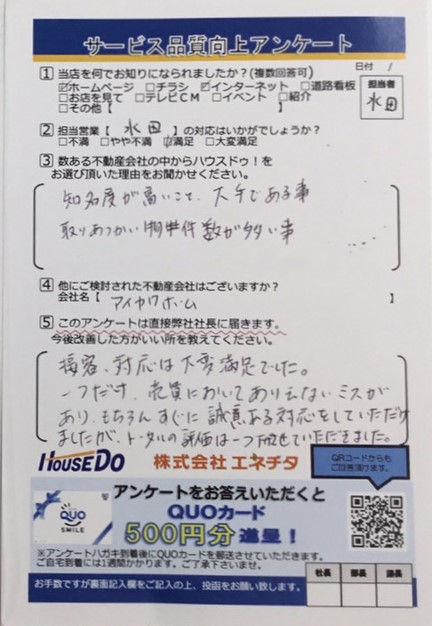 サービス品質向上アンケート
日付 /
1 当店を何でお知りになられましたか?(複数回答可)
☑ホームページ □チラシ ☑インターネット □道路看板
□お店を見て □テレビCM □イベント □紹介
□その他【 】
担当者
水田
2 担当営業【 水田 】の対応はいかがでしょうか?
□不満 □やや不満 ☑満足 □大変満足
3 数ある不動産会社の中からハウスドゥ!を
お選び頂いた理由をお聞かせください。
知名度が高いこと、大手である事
取りあつかい物件件数が多い事
4 他にご検討された不動産会社はございますか?
会社名【 アイカワホーム 】
5 このアンケートは直接弊社社長に届きます。
今後改善した方がいい所を教えてください。
接客、対応は大変満足でした。
一つだけ、売買においてありえないミスが
あり、もちろんすぐに誠意ある対応をしていただけ
ましたが、トータルの評価は一つ下させていただきました。
HOUSEDO 株式会社 エネチタ
QRコードからも
ご回答頂けます。
QUO
SMILE
アンケートをお答えいただくと
QUOカード
500円分進呈!
※アンケートハガキ到着後にQUOカードを郵送させていただきます。
ご自宅到着には1週間かかります。ご了承下さいませ。
お手数ですが裏面記入欄をご記入の上、投函をお願い致します。
社長 部長 課長